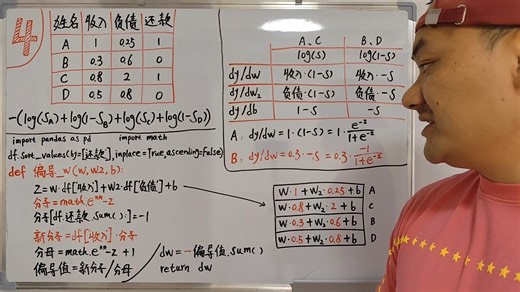 4
姓名 收入 负债 还款
A 1 0.25 1
B 0.3 0.6 0
C 0.8 2 1
D 0.5 0.8 0
-(log(SA)+log(1-SB)+log(SC)+log(1-SD))
import pandas as pd import math
df.sort_values(by=[还款],inplace=True,ascending=False)
def 偏导_w(w,w2,b):
Z=w·df[收入]+w2·df[负债]+b
分子=math.e**-z
分子[df.还款.sum():]=-1
新分子=df[收入]·分子
分母=math.e**-z+1
偏导值=新分子/分母
dw=-偏导值.sum()
return dw
A、C B、D
log(s) log(1-s)
dy/dw 收入·(1-s) 收入·-s
dy/dw2 负债·(1-s) 负债·-s
dy/db 1-s -s
A: dy/dw=1·(1-s)=1·e^-z/1+e^-z
B: dy/dw=0.3·-s=0.3·-1/1+e^-z
w·1+w2·0.25+b A
w·0.8+w2·2+b C
w·0.3+w2·0.6+b B
w·0.5+w2·0.8+b D